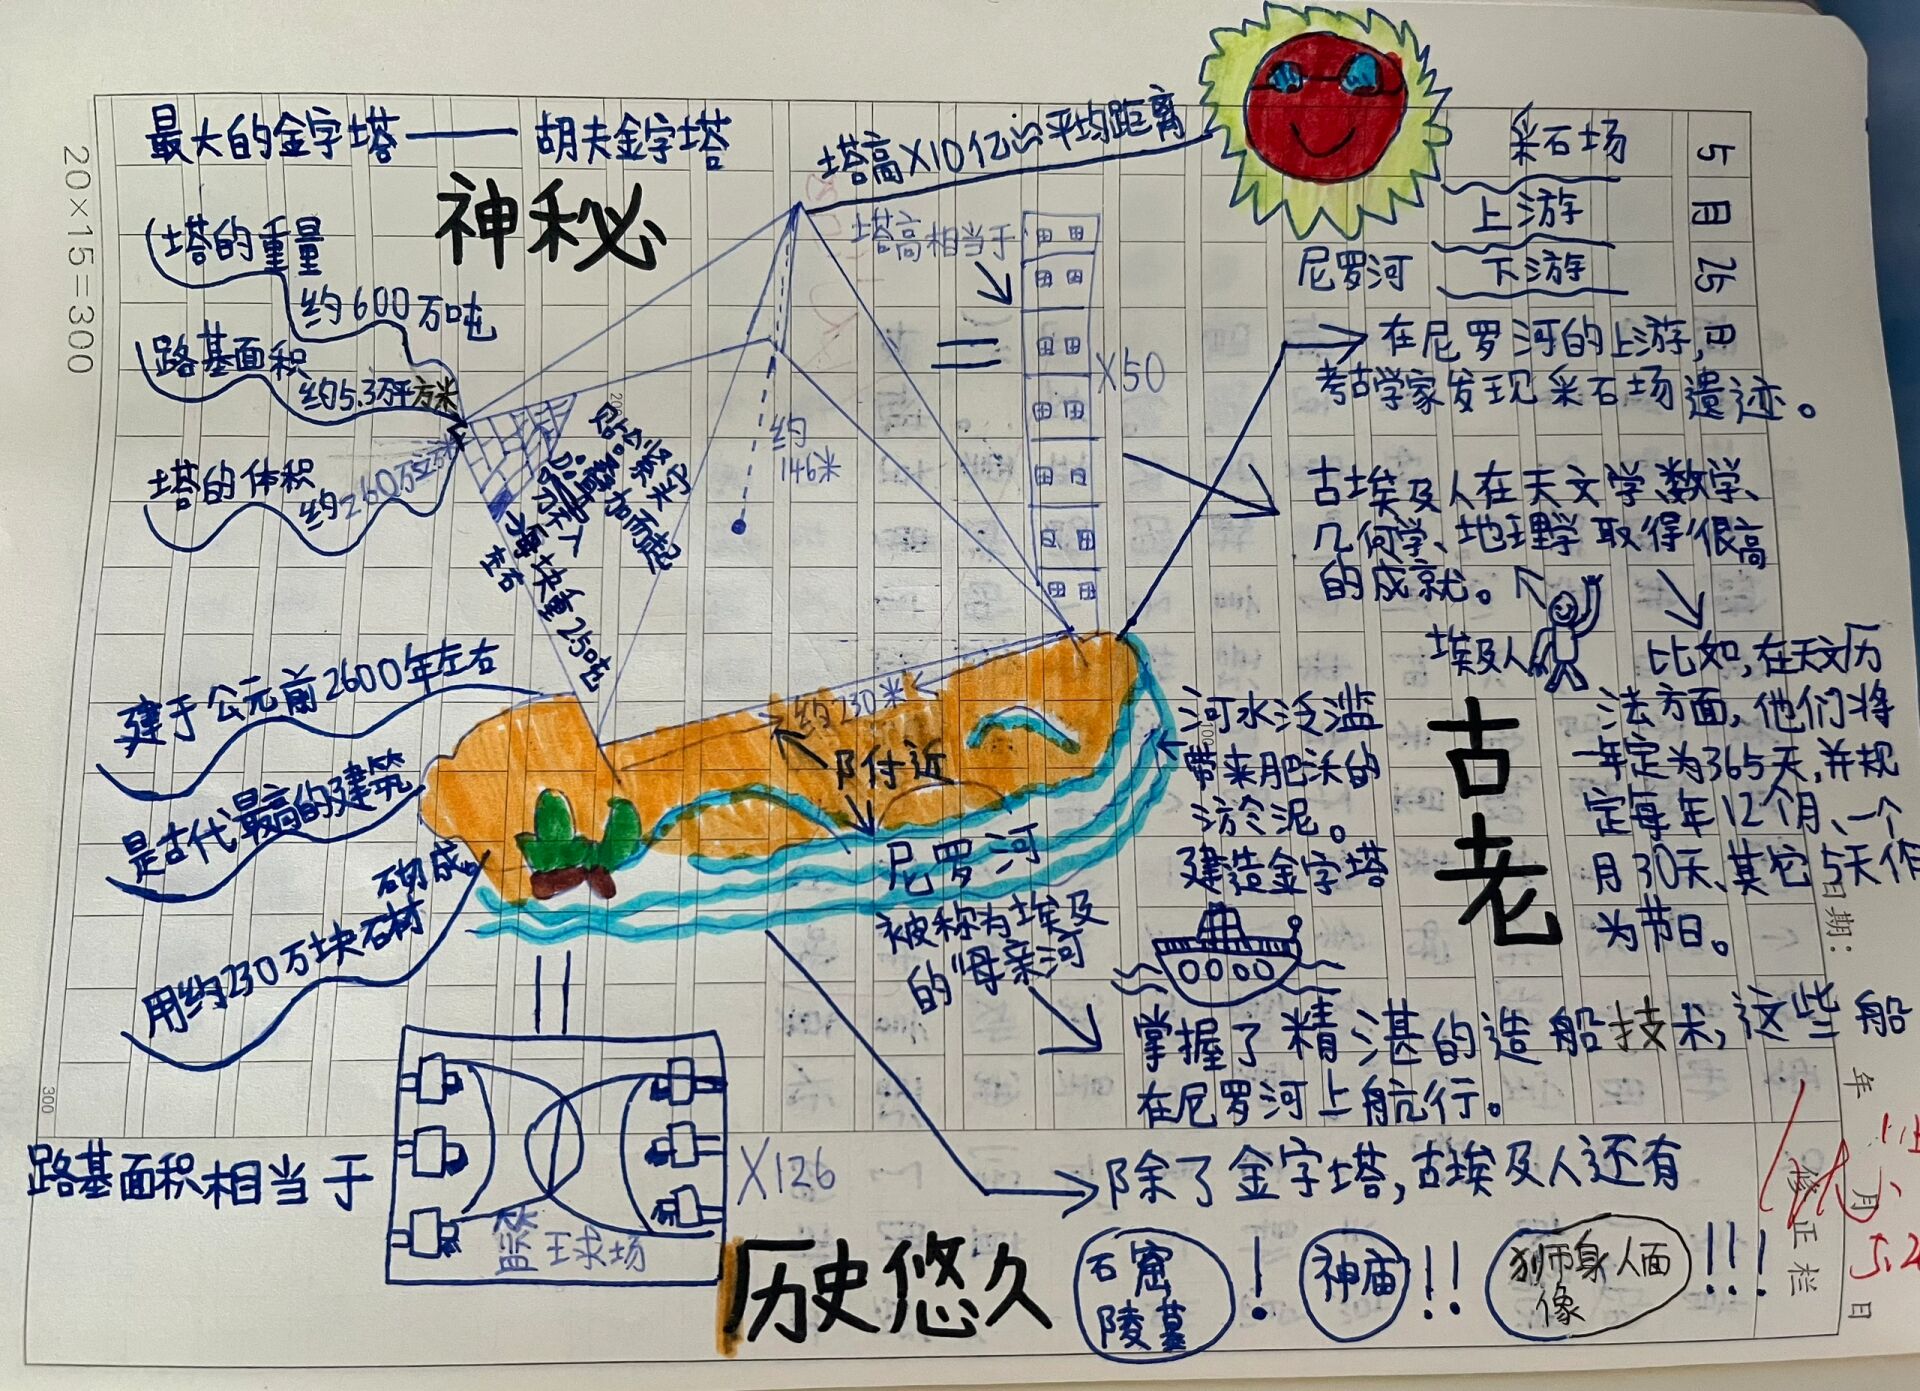 20×15=300
最大的金字塔——胡夫金字塔
神秘
塔的重量
约600万吨
路基面积
约5.3万平方米
塔的体积
约260万立方米
塔高×10亿≈平均距离
塔高相当于
×50
约
146米
每块重2.50吨
左右
约230米长
附近
建于公元前2600年左右
是古代最高的建筑
用约230万块石材
砌成。
尼罗河
被称为埃及
的“母亲河
路基面积相当于
篮球场
×126
历史悠久
采石场
上游
尼罗河
下游
5月25日
在尼罗河的上游,
考古学家发现采石场遗迹。
古埃及人在天文学、数学、
几何学、地理学取得很高
的成就。
埃及人
比如,在天文历
法方面,他们将
一年定为365天,并规
定每年12个月、一个
月30天、其它5天作
为节日。
古老
河水泛滥
带来肥沃的
淤泥。
建造金字塔
掌握了精湛的造船技术,这些船
在尼罗河上航行。
除了金字塔,古埃及人还有
石窟
陵墓
!
神庙
!!
狮身人面
像
!!!
100
200
300
日期:
年
月
日
修正栏